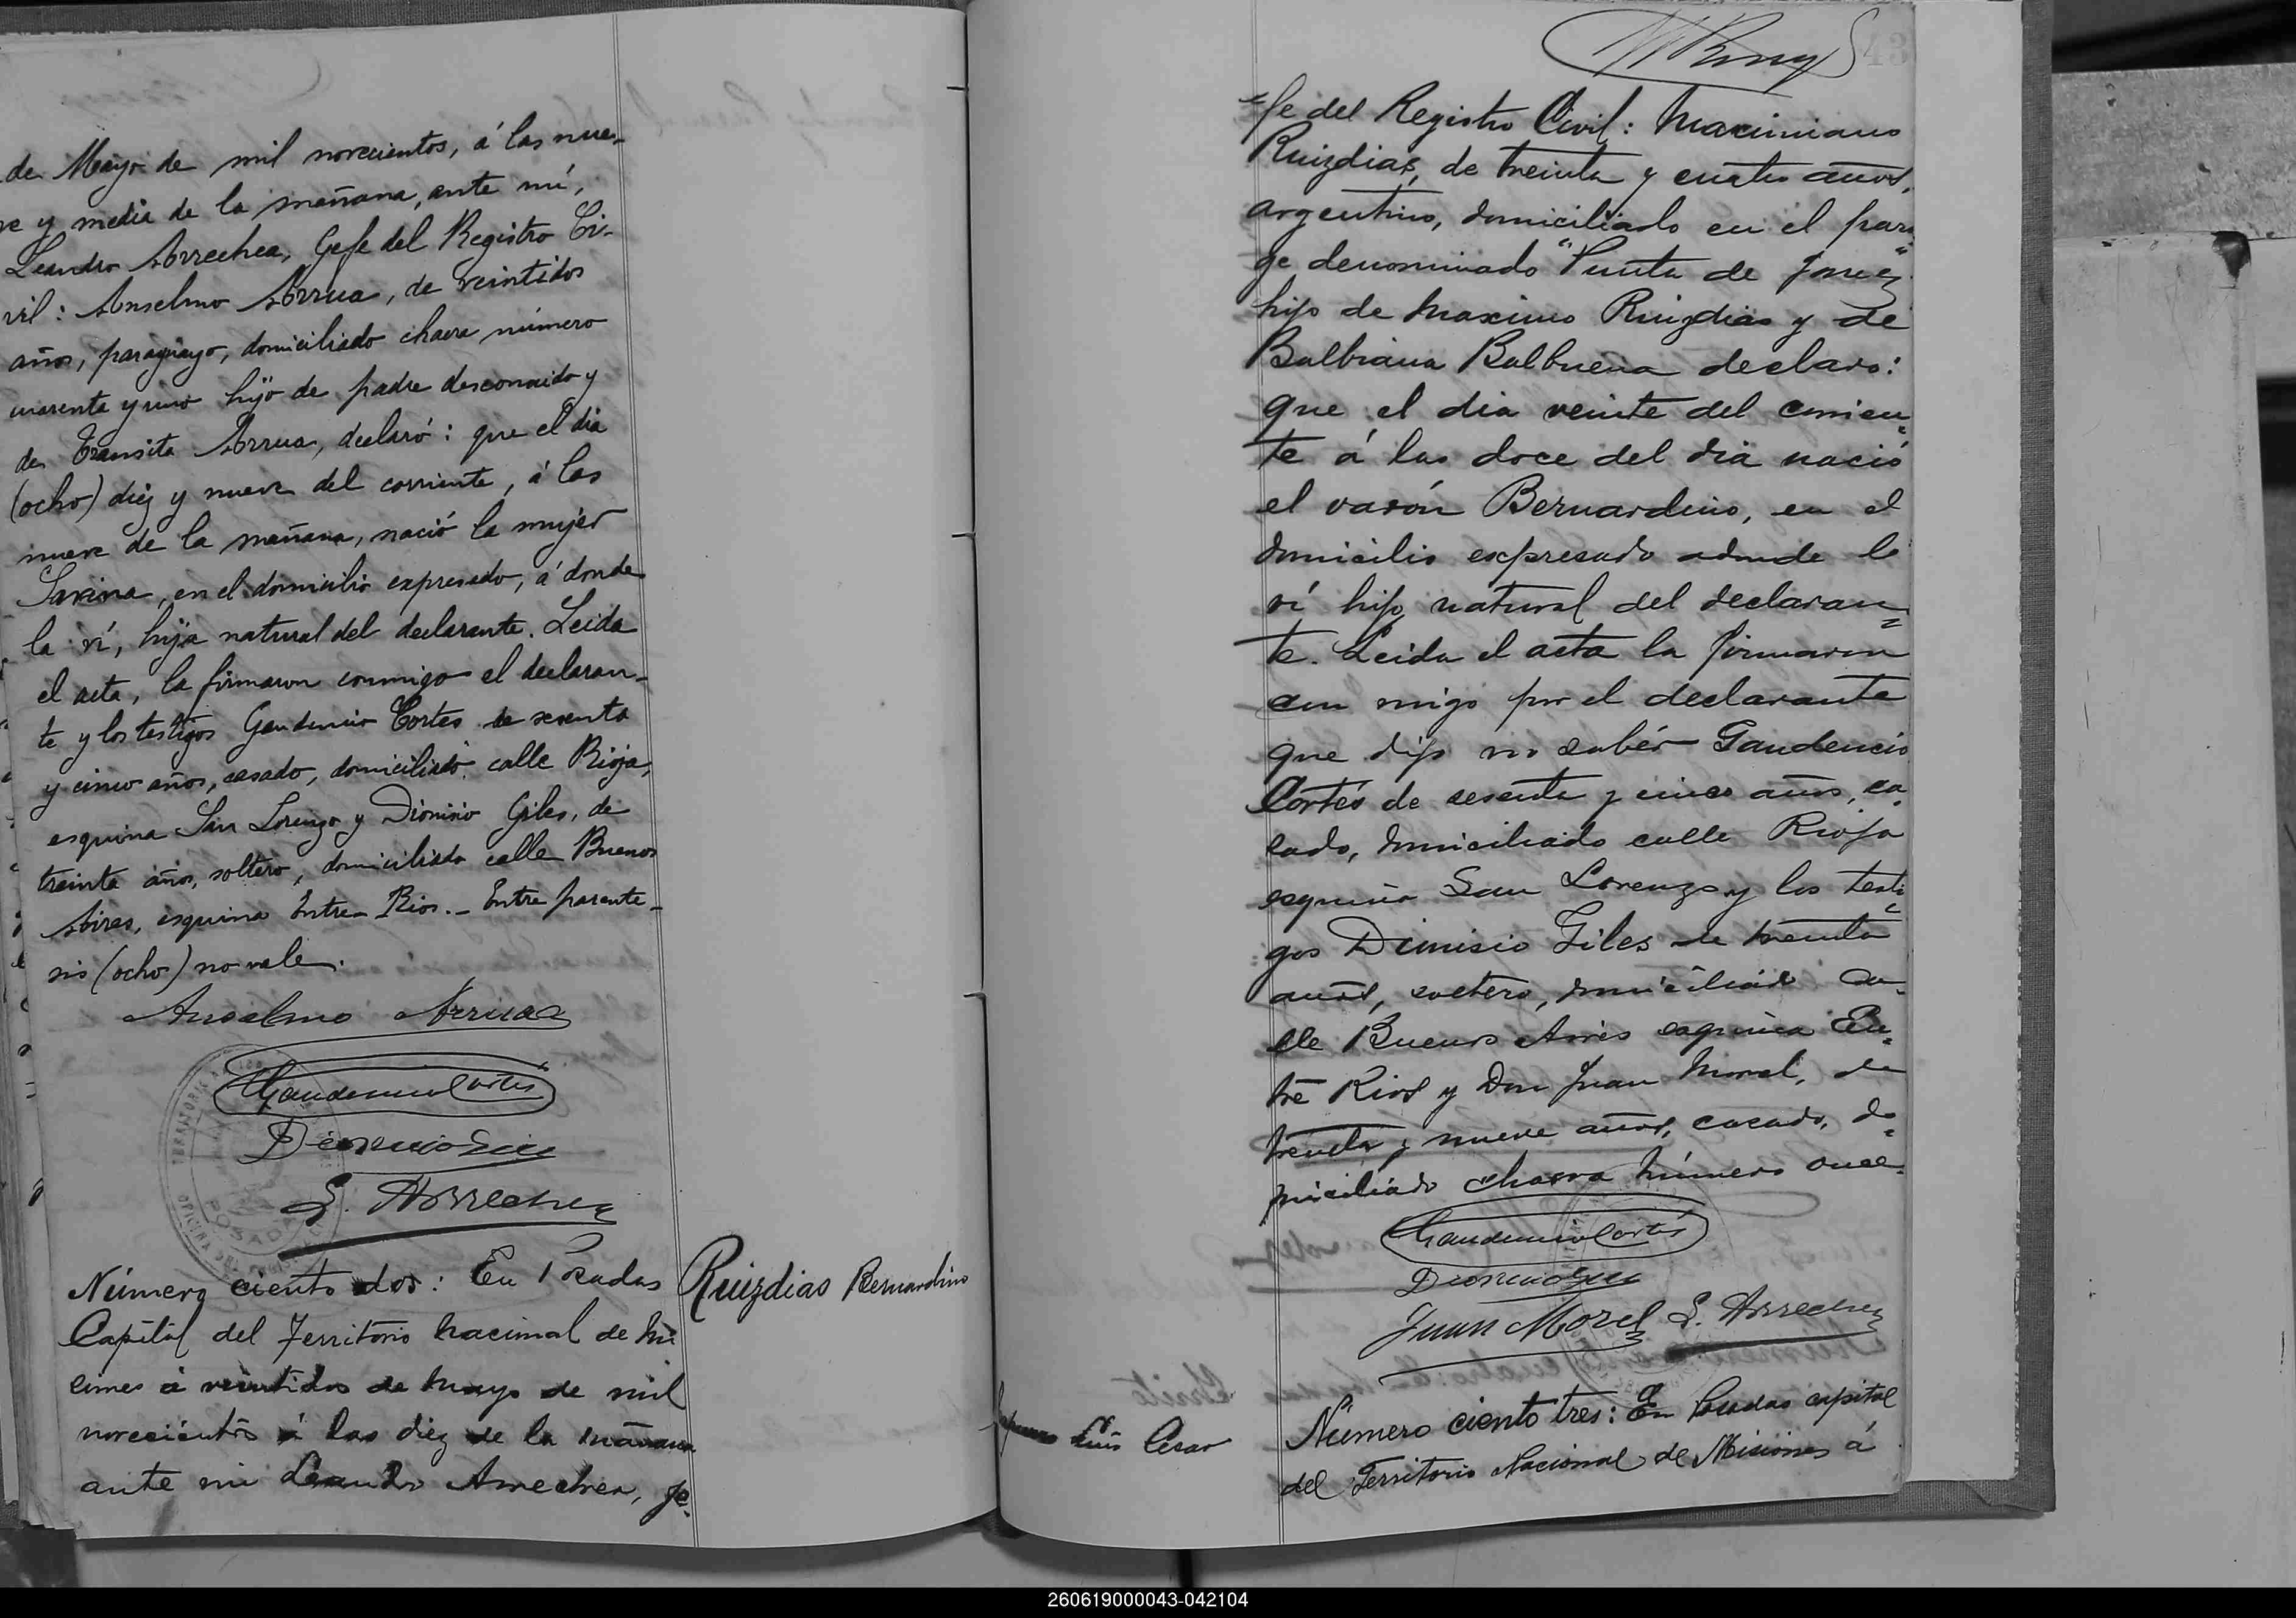 de Mayo de mil novecientos, á las nue-
ve y media de la mañana, ante mí,
Leandro Arrechea, Gefe del Registro Ci-
vil: Anselmo Arrua, de veintidos
años, paraguayo, domiciliado chacra número
cuarenta y uno hijo de padre desconocido y
de Transita Arrua, declaró: que el dia
(ocho) diez y nueve del corriente, á las
nueve de la mañana, nació la mujer
Savina, en el domicilio expresado, á donde
la ví, hija natural del declarante. Leida
el acta, la firmaron conmigo el declaran-
te y los testigos Gaudencio Cortes de sesenta
y cinco años, casado, domiciliado calle Rioja,
esquina San Lorenzo y Dionisio Giles, de
treinta años, soltero, domiciliado calle Buenos
Aires, esquina Entre Rios.- Entre parente-
sis (ocho) no vale.
Anselmo Arrua
Gaudencio Cortés
Dionisio Giles
L. Arrechea
Número ciento dos: En Posadas
Capital del Territorio Nacional de Mi
ciones á veintidos de Mayo de mil
novecientos á las diez de la mañana
ante mi Leandro Arrechea, Je-
Ruizdias Bernardino
43
fe del Registro Civil: Maximiano
Ruizdias, de treinta y cuatro años,
argentino, domiciliado en el para-
ge denominado "Punta de
hijo de Maximo Ruizdias y de
Balbiana Balbuena declaro:
que el dia veinte del corrien-
te á las doce del dia nació
el varón Bernardino, en el
domicilio expresado adonde lo
ví hijo natural del declaran-
te. Leida el acta la firmaron
con migo por el declarante
que dijo no sabér Gaudencio
Cortés de sesenta y cinco años, ca-
sado, domiciliado calle Rioja
esquina San Lorenzo y los testi-
gos Dionisio Giles de treinta
años, soltero, domiciliado ca-
lle Buenos Aires esquina En-
tre Rios y Don Juan Morel, de
treinta y nueve años, casado, do-
miciliado chacra número once.
Gaudencio Cortés
Dionisio Giles
Juan Morel L. Arrechea
Luis Cesar
Número ciento tres: En Posadas capital
del Territorio Nacional de Misiones á
260619000043-042104